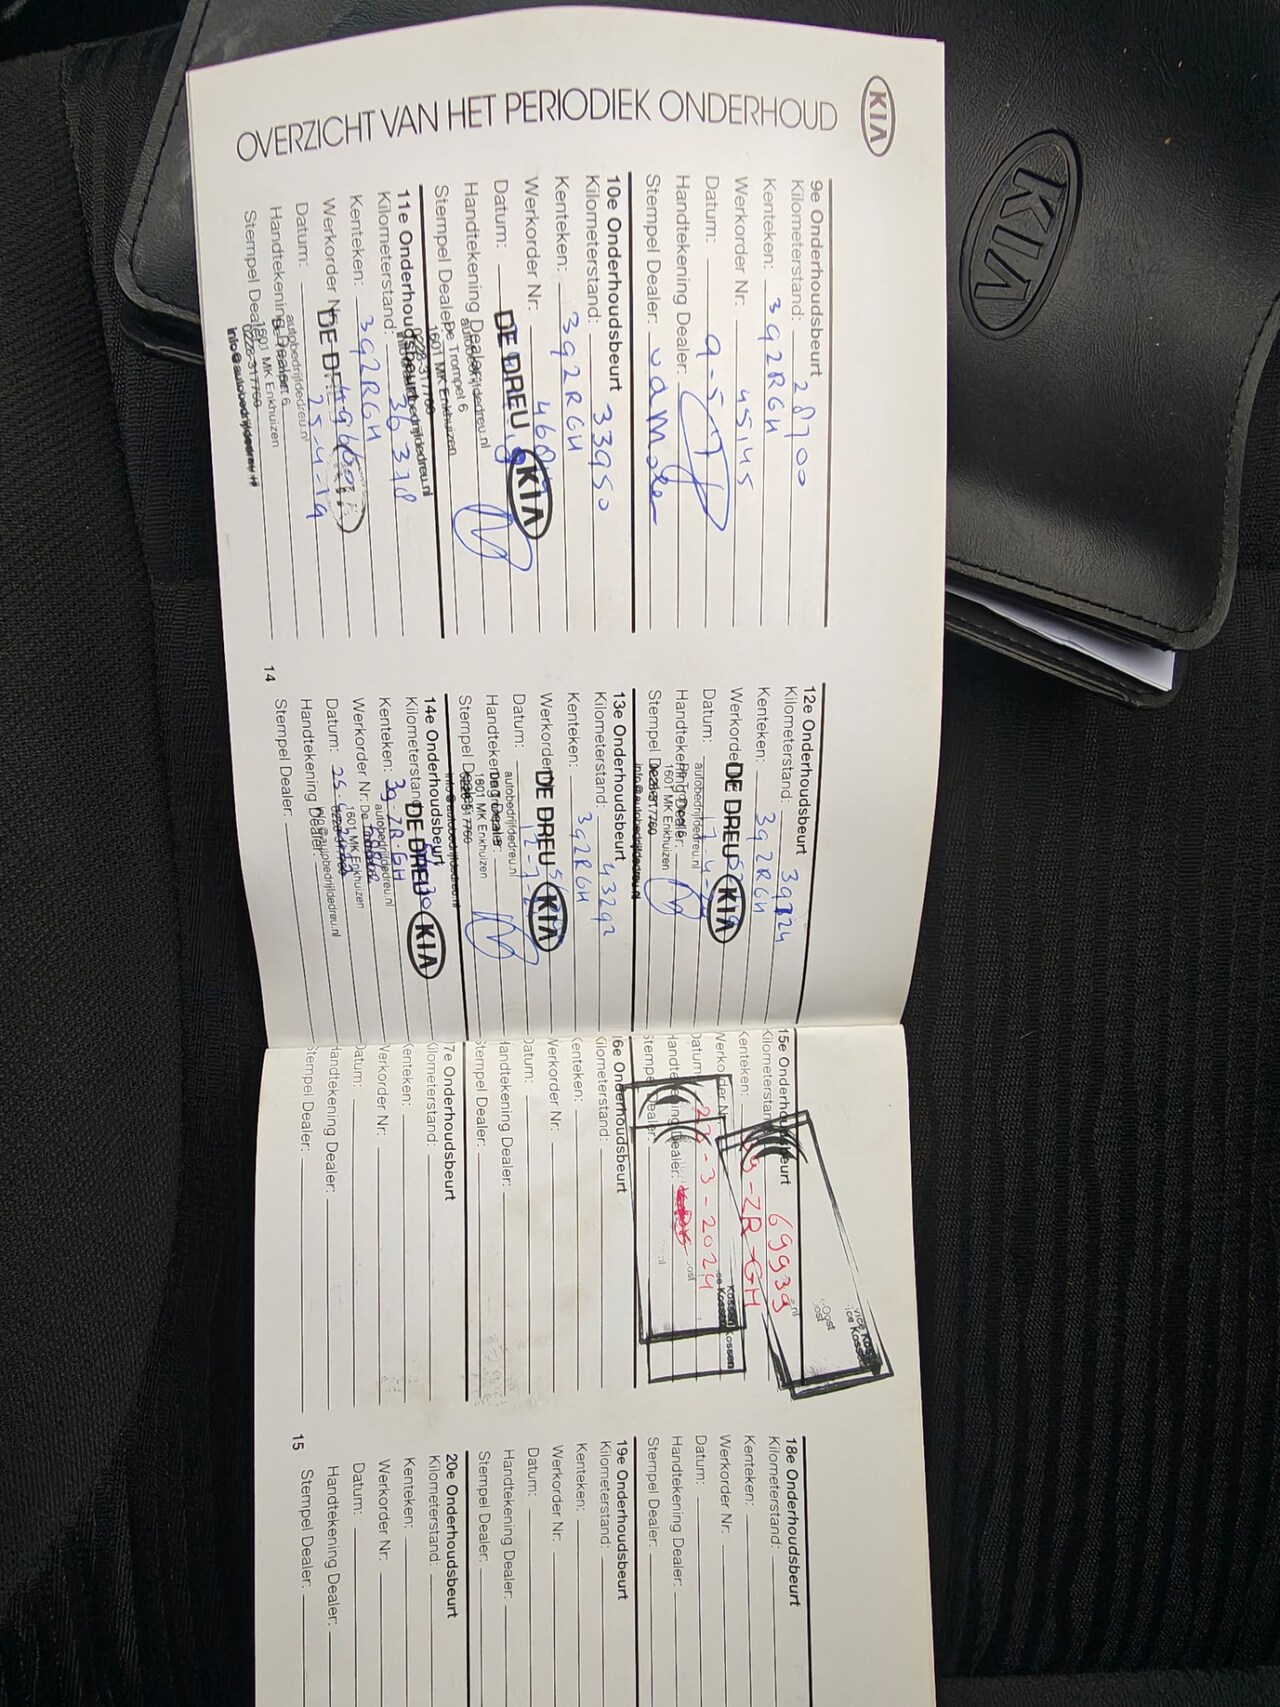 KIA
OVERZICHT VAN HET PERIODIEK ONDERHOUD
KIA
9e Onderhoudsbeurt
Kilometerstand: 28700
Kenteken: 392RGH
Werkorder Nr: 45145
Datum: 9-5
Handtekening Dealer:
Stempel Dealer:
10e Onderhoudsbeurt
Kilometerstand: 33950
Kenteken: 392RGH
Werkorder Nr:
Datum:
DE DREU KIA
Handtekening Dealer:
autobedrijfdedreu.nl
Stempel Dealer:
De Trompet 6
1601 MK Enkhuizen
0228-317760
11e Onderhoudsbeurt
Kilometerstand: 36378
Kenteken: 392RGH
Werkorder Nr:
Datum: 25-4-19
autobedrijfdedreu.nl
Handtekening Dealer:
1601 MK Enkhuizen
Stempel Dealer:
0228-317760
info@autobedrijfdedreu.nl
14
12e Onderhoudsbeurt
Kilometerstand: 39724
Kenteken: 392RGH
Werkorder
DE DREU KIA
Datum:
autobedrijfdedreu.nl
Handtekening Dealer:
1601 MK Enkhuizen
Stempel Dealer:
0228-317760
info@autobedrijfdedreu.nl
13e Onderhoudsbeurt
Kilometerstand: 43292
Kenteken: 392RGH
Werkorder
DE DREU KIA
Datum:
autobedrijfdedreu.nl
Handtekening Dealer:
1601 MK Enkhuizen
Stempel Dealer:
info@autobedrijfdedreu.nl
14e Onderhoudsbeurt
Kilometerstand:
DE DREU KIA
Kenteken: 39-ZR-GH
autobedrijfdedreu.nl
Werkorder Nr:
1601 MK Enkhuizen
Datum:
info@autobedrijfdedreu.nl
Handtekening Dealer:
Stempel Dealer:
15e Onderhoudsbeurt
Kilometerstand: 69939
Kenteken: 39-ZR-GH
Werkorder Nr:
Datum: -3-2024
Handtekening Dealer:
Stempel Dealer:
Kossen
16e Onderhoudsbeurt
Kilometerstand:
Kenteken:
Werkorder Nr:
Datum:
Handtekening Dealer:
Stempel Dealer:
17e Onderhoudsbeurt
Kilometerstand:
Kenteken:
Werkorder Nr:
Datum:
Handtekening Dealer:
Stempel Dealer:
15
18e Onderhoudsbeurt
Kilometerstand:
Kenteken:
Werkorder Nr:
Datum:
Handtekening Dealer:
Stempel Dealer:
19e Onderhoudsbeurt
Kilometerstand:
Kenteken:
Werkorder Nr:
Datum:
Handtekening Dealer:
Stempel Dealer:
20e Onderhoudsbeurt
Kilometerstand:
Kenteken:
Werkorder Nr:
Datum:
Handtekening Dealer:
Stempel Dealer: